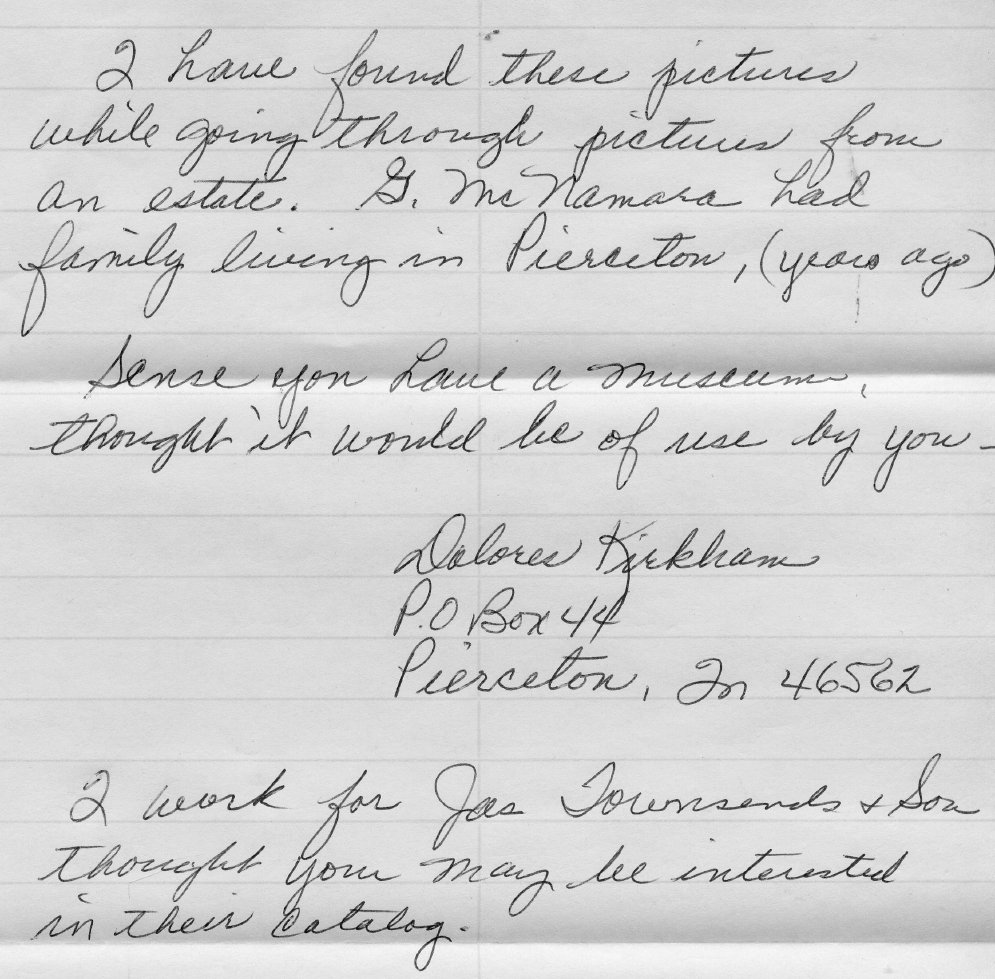 I have found these pictures
while going through pictures from
an estate. G. McNamara had
family living in Pierceton, (years ago)
Sense you have a museum,
thought it would be of use by you -
Dolores Kirkham
P.O Box 44
Pierceton, In 46562
I work for Jas Townsends & Son
thought you may be interested
in their catalog.